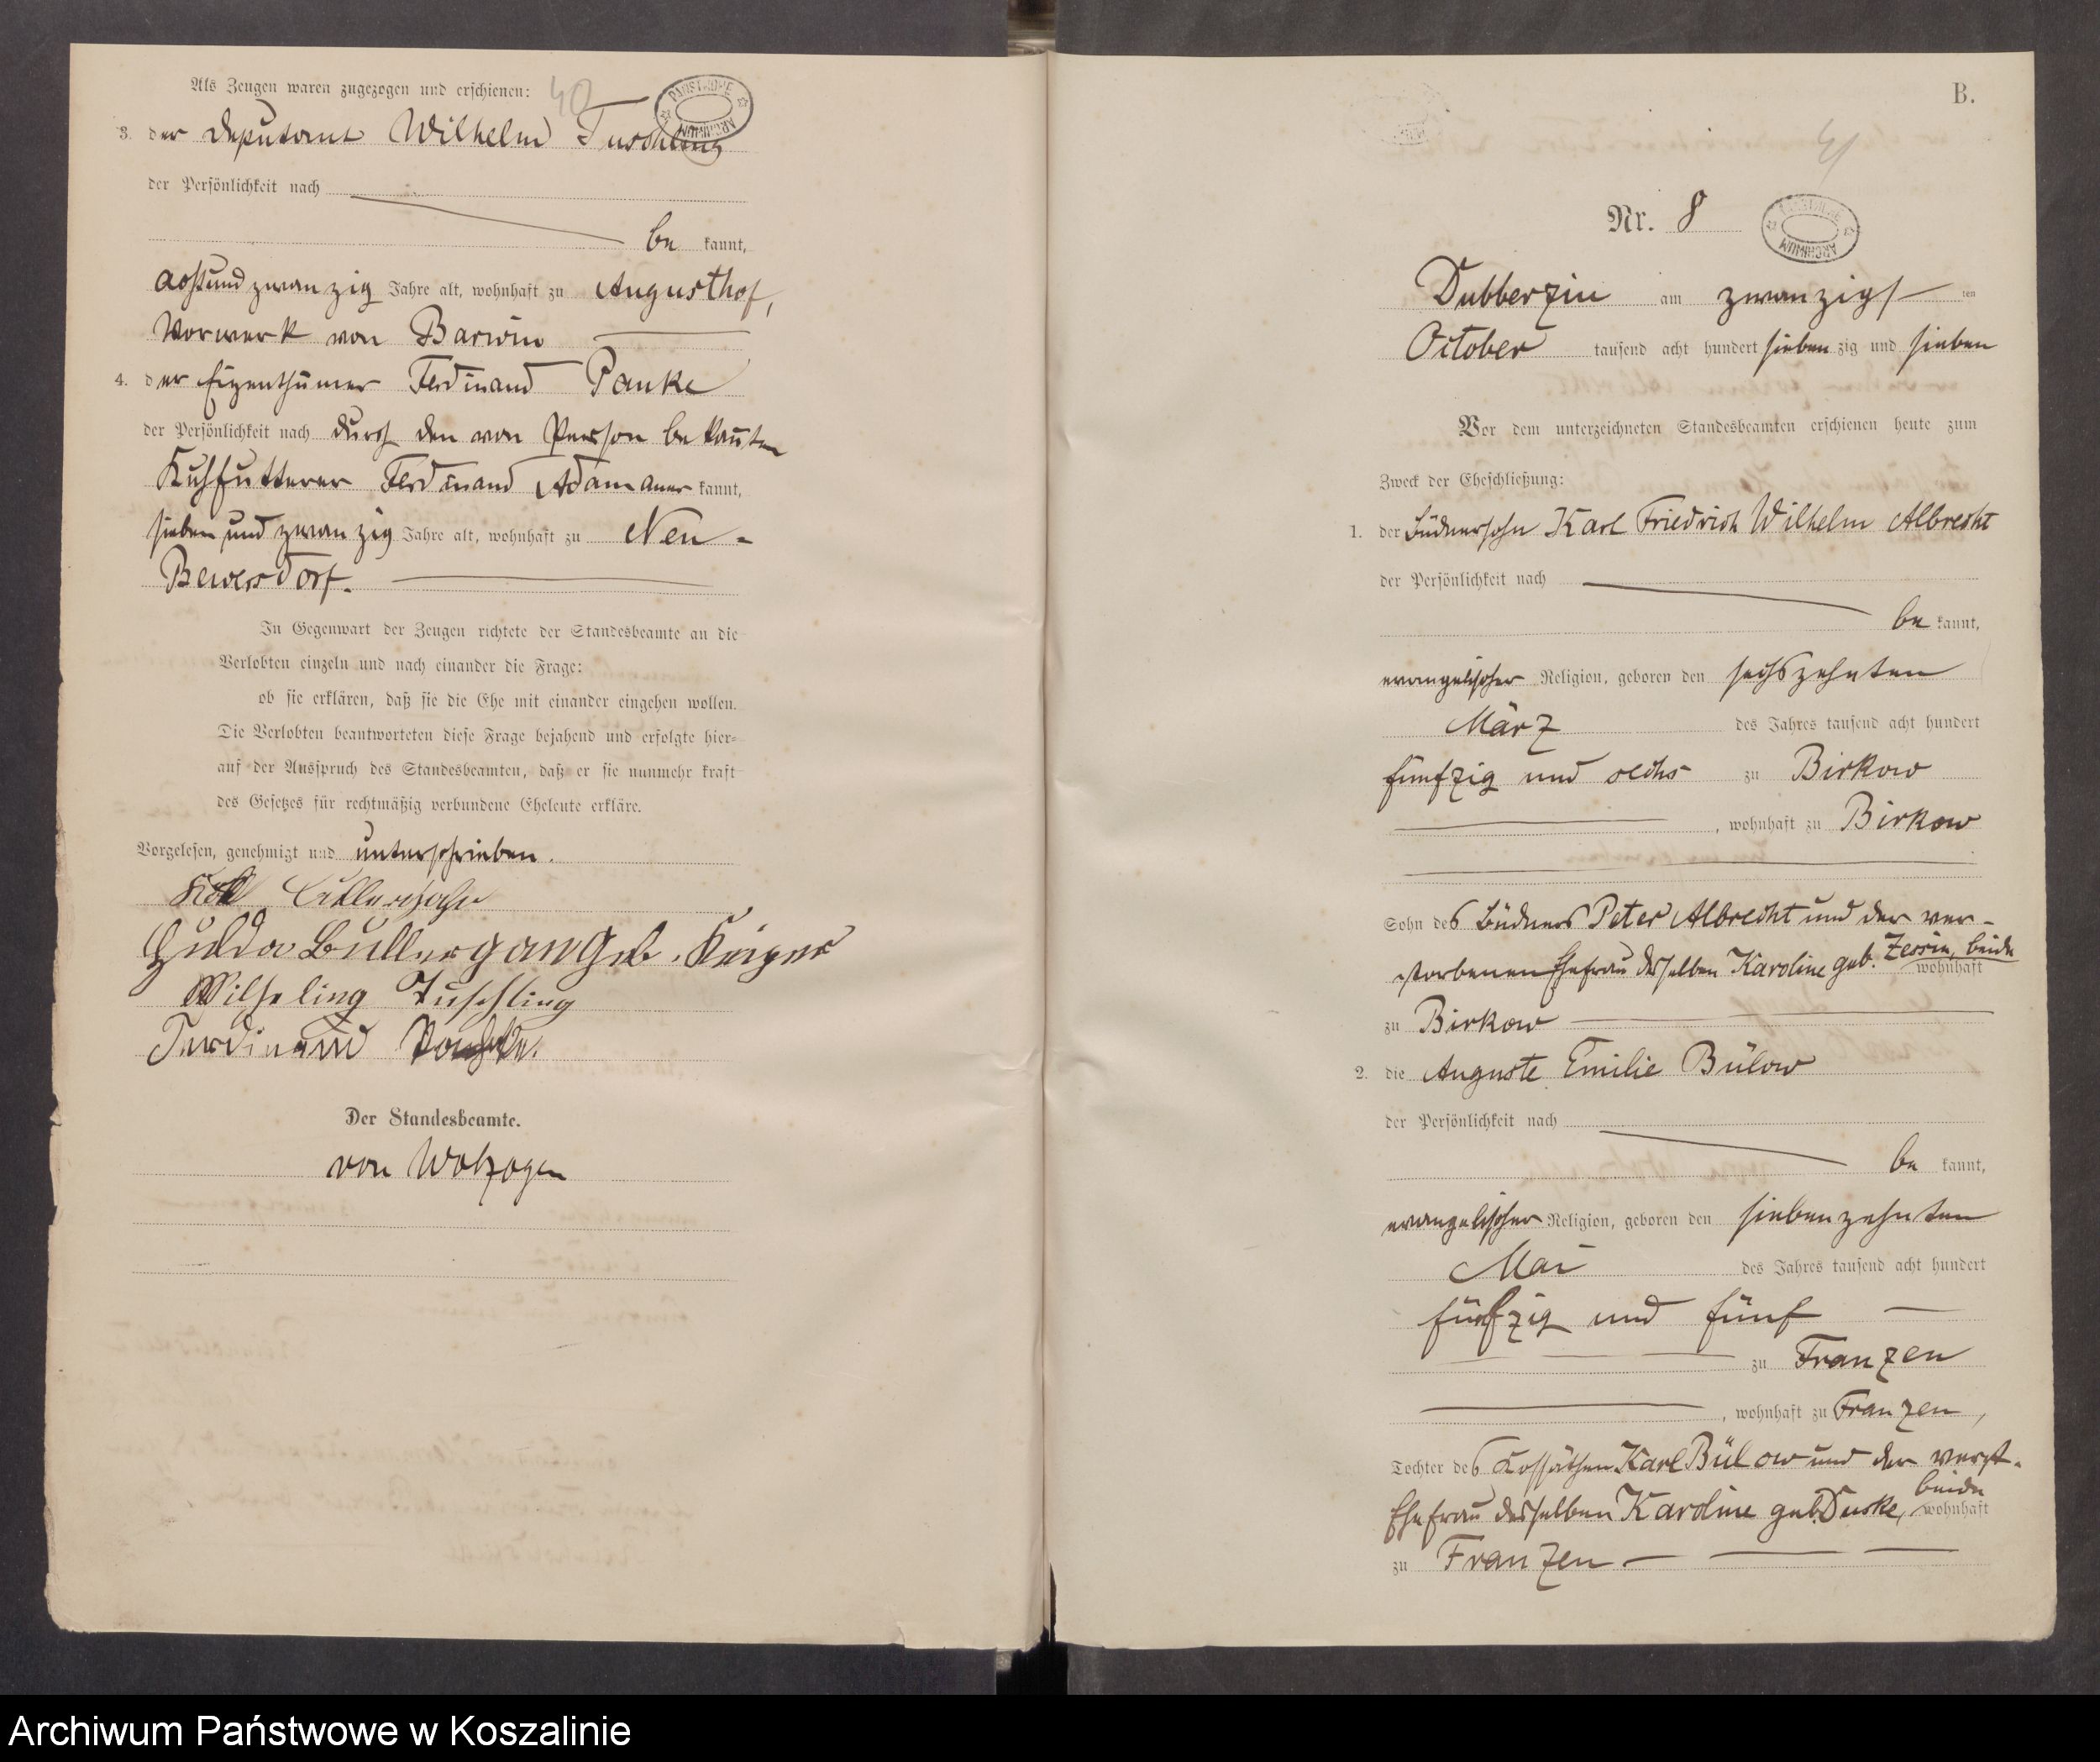 Als Zeugen waren zugezogen und erschienen:
40
PAŃSTWOWE
ARCHIWUM
3. der Deputant Wilhelm Tuschling
der Persönlichkeit nach
be kannt,
achtundzwanzig Jahre alt, wohnhaft zu Augusthof,
Vorwerk von Barwin
4. der Eigenthümer Ferdinand Panke
der Persönlichkeit nach durch den von Person bekannten
Kuhfutterer Ferdinand Adam aner kannt,
sieben und zwanzig Jahre alt, wohnhaft zu Neu-
Bewersdorf.
In Gegenwart der Zeugen richtete der Standesbeamte an die
Verlobten einzeln und nach einander die Frage:
ob sie erklären, daß sie die Ehe mit einander eingehen wollen.
Die Verlobten beantworteten diese Frage bejahend und erfolgte hier-
auf der Ausspruch des Standesbeamten, daß er sie nunmehr kraft
des Gesetzes für rechtmäßig verbundene Eheleute erkläre.
Vorgelesen, genehmigt und unterschrieben.
Hulda geb.
Tuschling
Ferdinand
Der Standesbeamte.
von Wolzogen
B.
41
Nr. 8
ARCHIWUM
Dubberzin am zwanzigsten
October tausend acht hundert sieben zig und sieben
Vor dem unterzeichneten Standesbeamten erschienen heute zum
Zweck der Eheschließung:
1. der Büdnersohn Karl Friedrich Wilhelm Albrecht
der Persönlichkeit nach
be kannt,
evangelischer Religion, geboren den sechszehnten
März des Jahres tausend acht hundert
fünfzig und sechs zu Birkow
, wohnhaft zu Birkow
Sohn des Büdners Peter Albrecht und der ver-
storbenen Ehefrau desselben Karoline geb. Zessin, beide
wohnhaft
zu Birkow
2. die Auguste Emilie Bülow
der Persönlichkeit nach
be kannt,
evangelischer Religion, geboren den siebenzehnten
Mai des Jahres tausend acht hundert
fünfzig und fünf
zu Franzen
, wohnhaft zu Franzen,
Tochter des Kossäthen Karl Bülow und der verst.
Ehefrau desselben Karoline geb. Duske, beide wohnhaft
zu Franzen
Archiwum Państwowe w Koszalinie